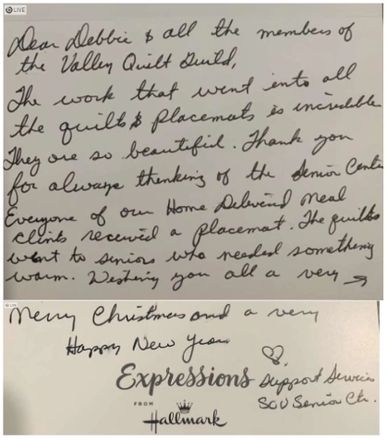 LIVE
Dear Debbie & all the members of
the Valley Quilt Guild,
The work that went into all
the quilts & placemats is incredible
They are so beautiful. Thank you
for always thinking of the Senior Center
Everyone of our Home Delivered Meal
clients received a placemat. The quilts
went to seniors who needed something
warm. Wishing you all a very →
LIVE
Merry Christmas and a very
Happy New Year
♡
Expressions
FROM
Hallmark
Support Services
SCV Senior Ctr.